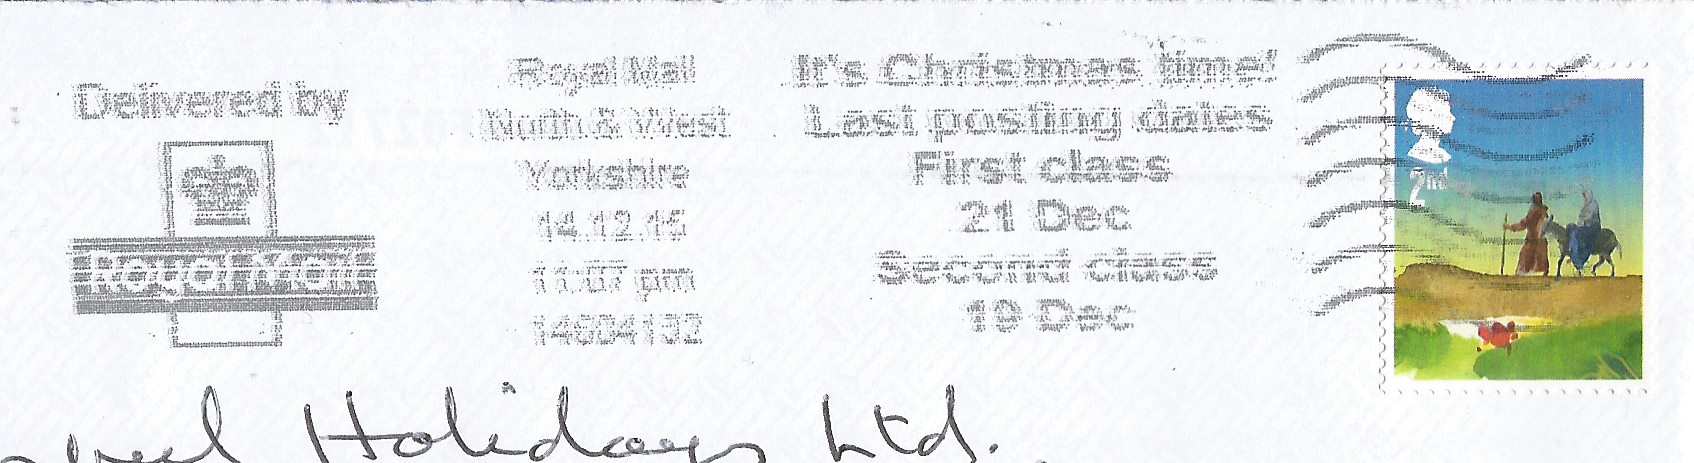 Delivered by
Royal Mail
Royal Mail
North & West
Yorkshire
14.12.15
11:07 pm
14604132
It's Christmas time!
Last posting dates
First class
21 Dec
Second class
19 Dec
2nd
Holidays Ltd.